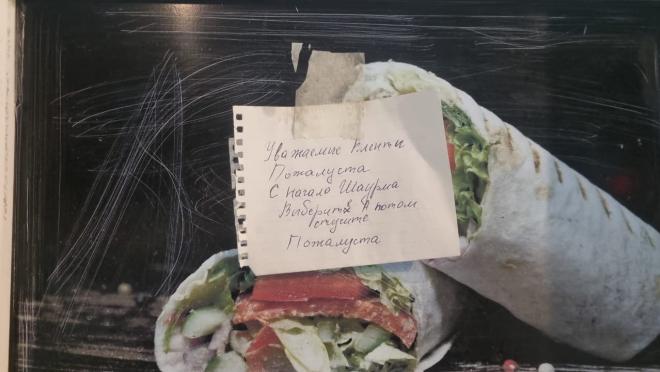 Уважаемые Кленты
Пожалуста
С начало Шаурма
Выберите А потом
стусите
Пожалуста